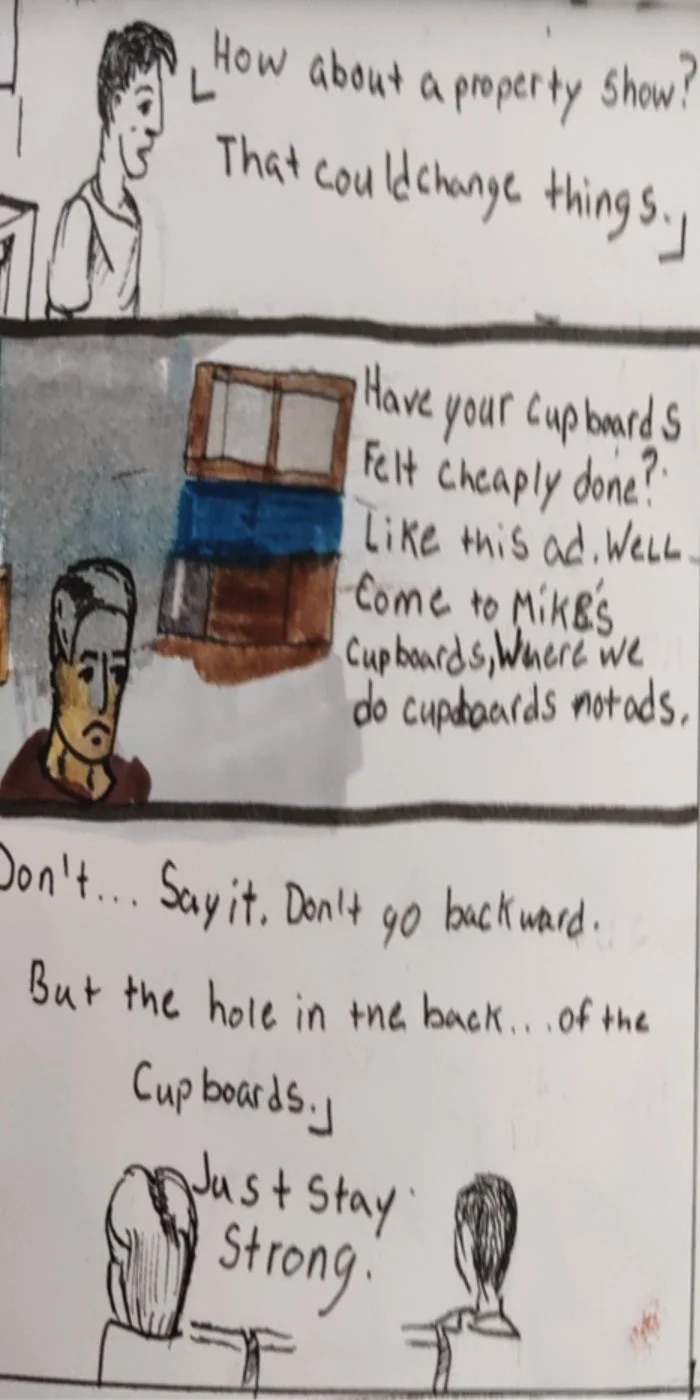 「How about a property Show?
That could change things.」
Have your cupboards
Felt cheaply done?
Like this ad. Well
Come to MiKE's
Cupboards, Where we
do cupboards not ads.
Don't... Say it. Don't go backward.
But the hole in the back... of the
Cupboards.」
Just Stay
Strong.